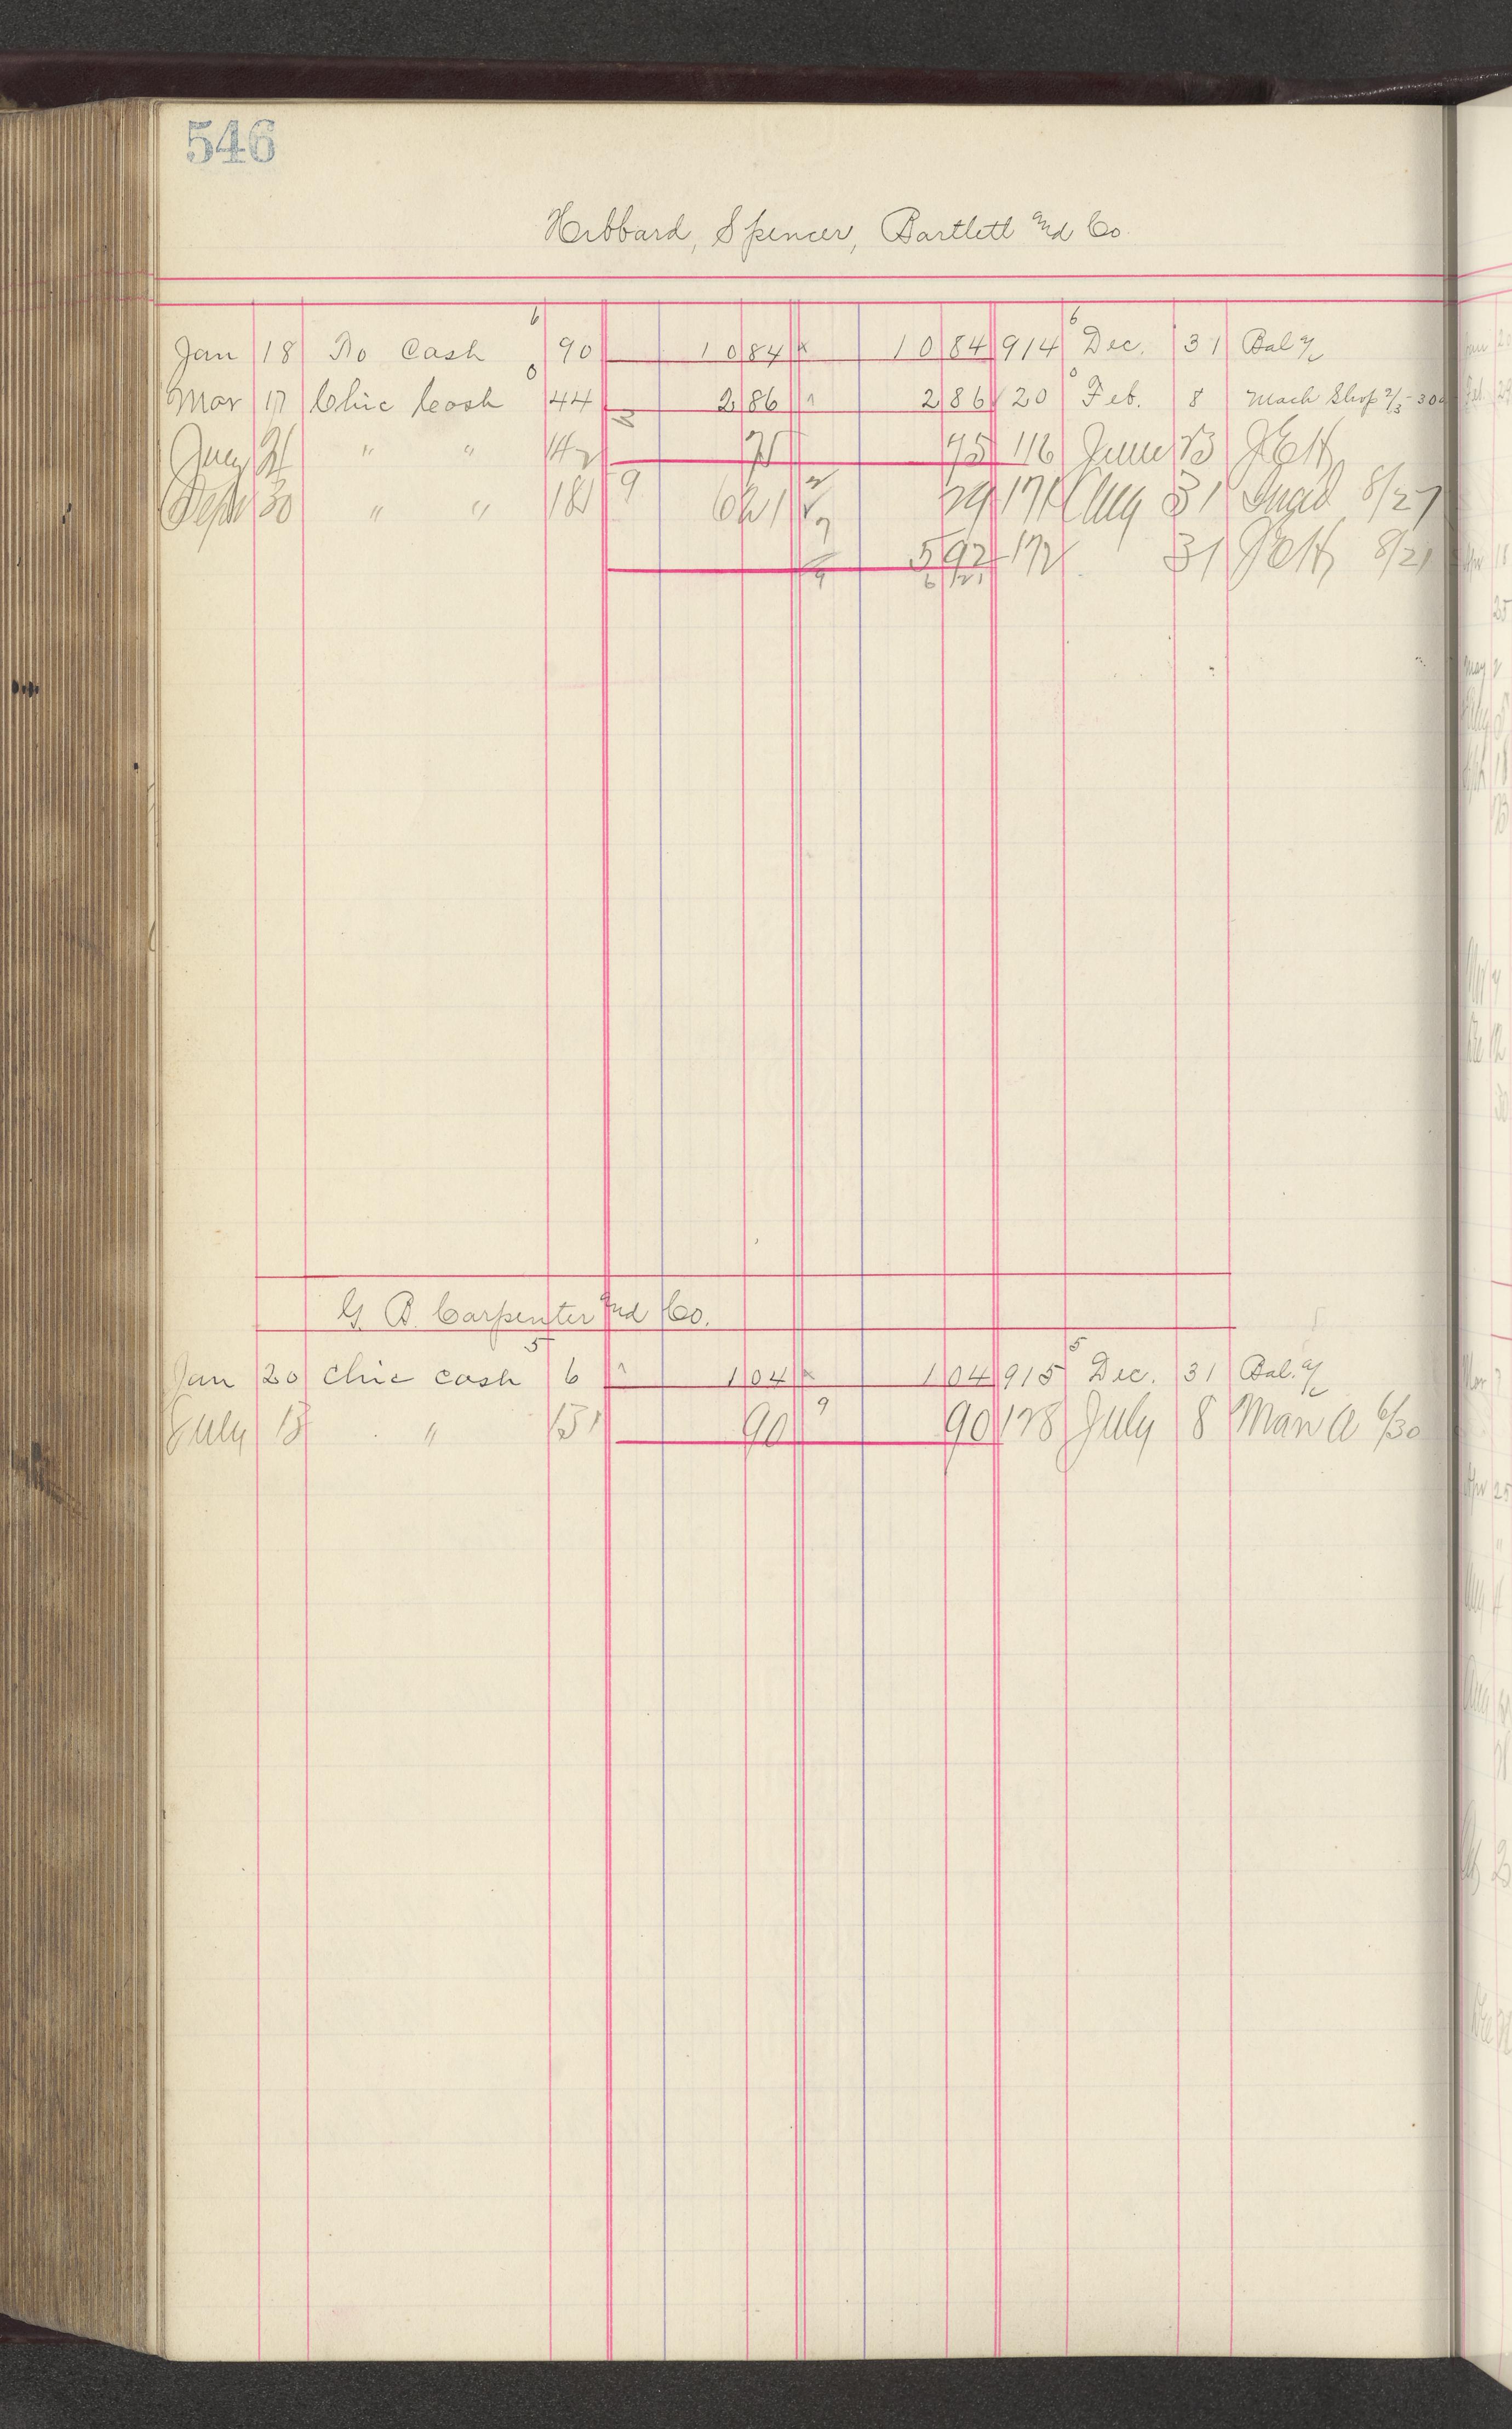 546
Hibbard, Spencer, Bartlett and Co.
6 6
Jan 18 To Cash 90 10 84 x 10 84 914 Dec. 31 Bal a/c
0 0
Mar 17 Chic Cash 44 2 86 2 86 20 Feb. 8 Mach Shop 2/3-
" " 142 75 75 116 June 23 JEH
Sept 30 " " 181 9 6 21 29 171 Aug 31 8/27
5 92 172 31 JEH 8/21
6 21
G. B. Carpenter and Co.
5 5
Jan 20 Chic cash 6 1 04 x 1 04 915 Dec. 31 Bal. a/c
July 13 " 131 90 9 90 128 July 8 Man a 6/30